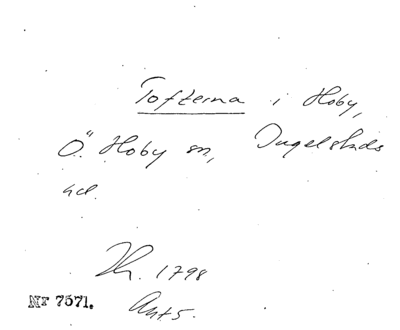 Tofterna i Hoby,
Ö. Hoby sn, Ingelstads
hd.
Th. 1798
Akt 5.
Nr 7571.